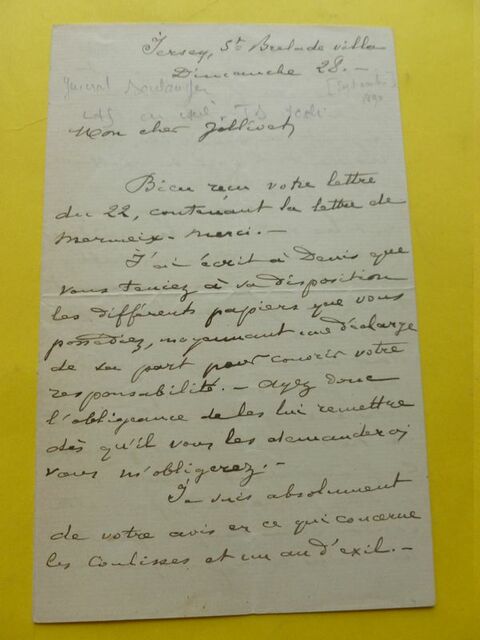 Jersey, St Brelade villa
Dimanche 28.-
Général Boulanger
[Septembre
1890
en exil
Mon cher Jollivet,
Bien reçu votre lettre
du 22, contenant la lettre de
Mermeix. Merci.-
J'ai écrit à Denis que
vous teniez à sa disposition
les différents papiers que vous
possédiez, moyennant une décharge
de sa part pour couvrir votre
responsabilité.- Ayez donc
l'obligeance de les lui remettre
dès qu'il vous les demandera;
vous m'obligerez.-
Je suis absolument
de votre avis en ce qui concerne
les Coulisses et un an d'exil.-